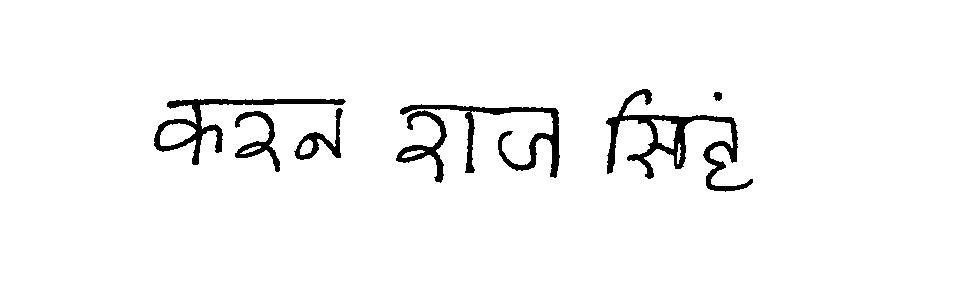 करन राज सिहं